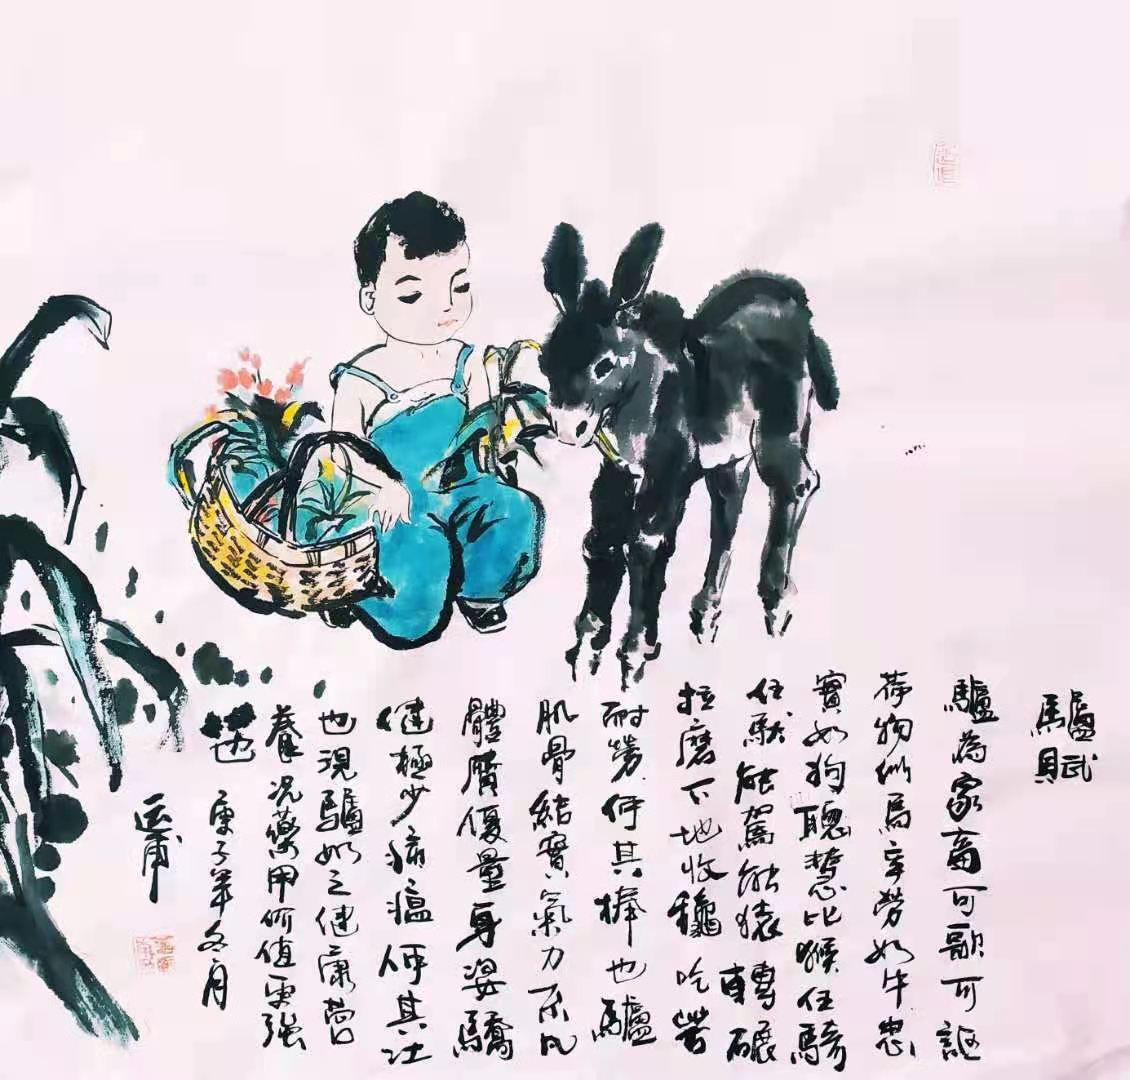 驢賦
驢為家畜可歌可謳
荷物似馬辛勞如牛忠
實如狗聰慧比猴任騎
任馱能駕能猿轉碾
拉磨下地收種吃苦
耐勞何其棒也驢
肌骨結實氣力不凡
體膺優量身姿驕
健極少病瘟何其壮
也現驢如之健康營
養况藥用价值更強
庚子年冬月